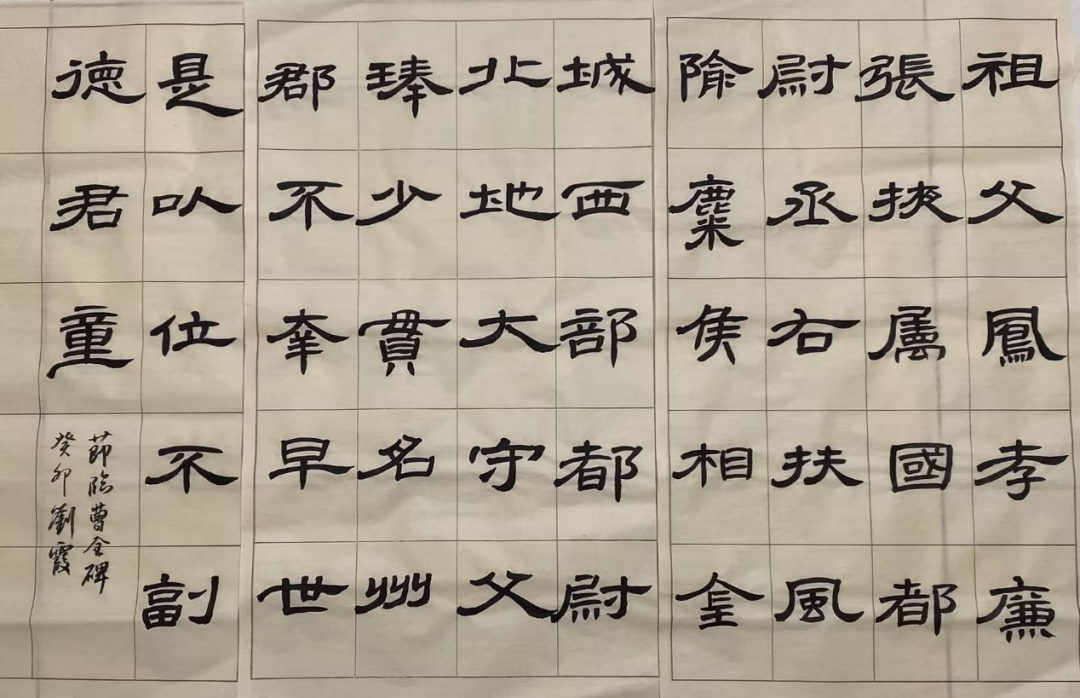 祖父鳳孝廉
張掖属國都
尉丞右扶風
隃麋侯相金
城西部都尉
北地大守父
琫少貫名州
郡不幸早世
是以位不副
德君童
節臨曹全碑
癸卯劉霞